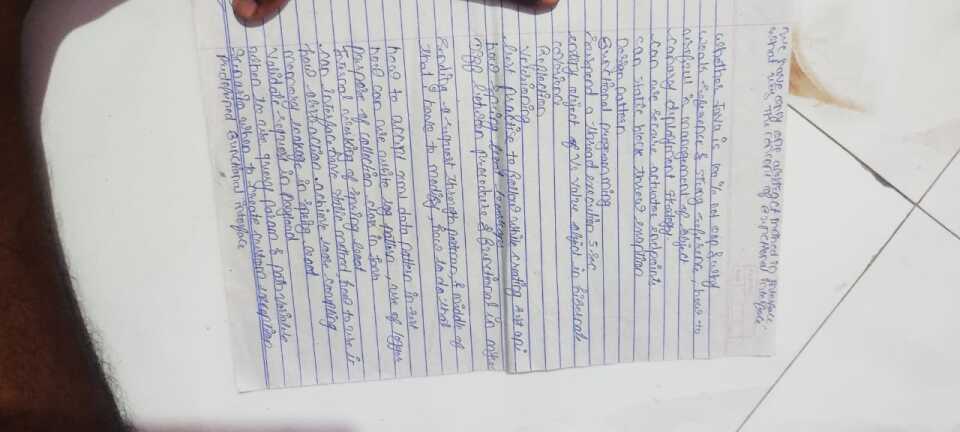 we have only one abstract method in interface,
what was the concept of Functional interface
whether Java is 100 % not oop & why
weak reference & strong reference, how to
in management of object
canary deployment strategy
can we secure actuator endpoints
can static block throw exception
Design pattern
Functional programming
Suspend a thread execution 5 sec
entity object Vs value object in hibernate
Reflection
Versioning
best practise to follow while creating rest api
how spring boot
diff between procedure & Functional in
Sending a request through postman, & middle of
that i have to modify, how to do that
how to accept xml data pattern in rest
how can we write log pattern, use of logger
purpose of collection class in Java
Internal working of spring boot
can interface have static method, how to use it
how abstraction achieve loose coupling
memory leakage in spring boot
validate request in payload
when to use query param & path variable
Scenario when to create custom exception
Predefined Functional interface